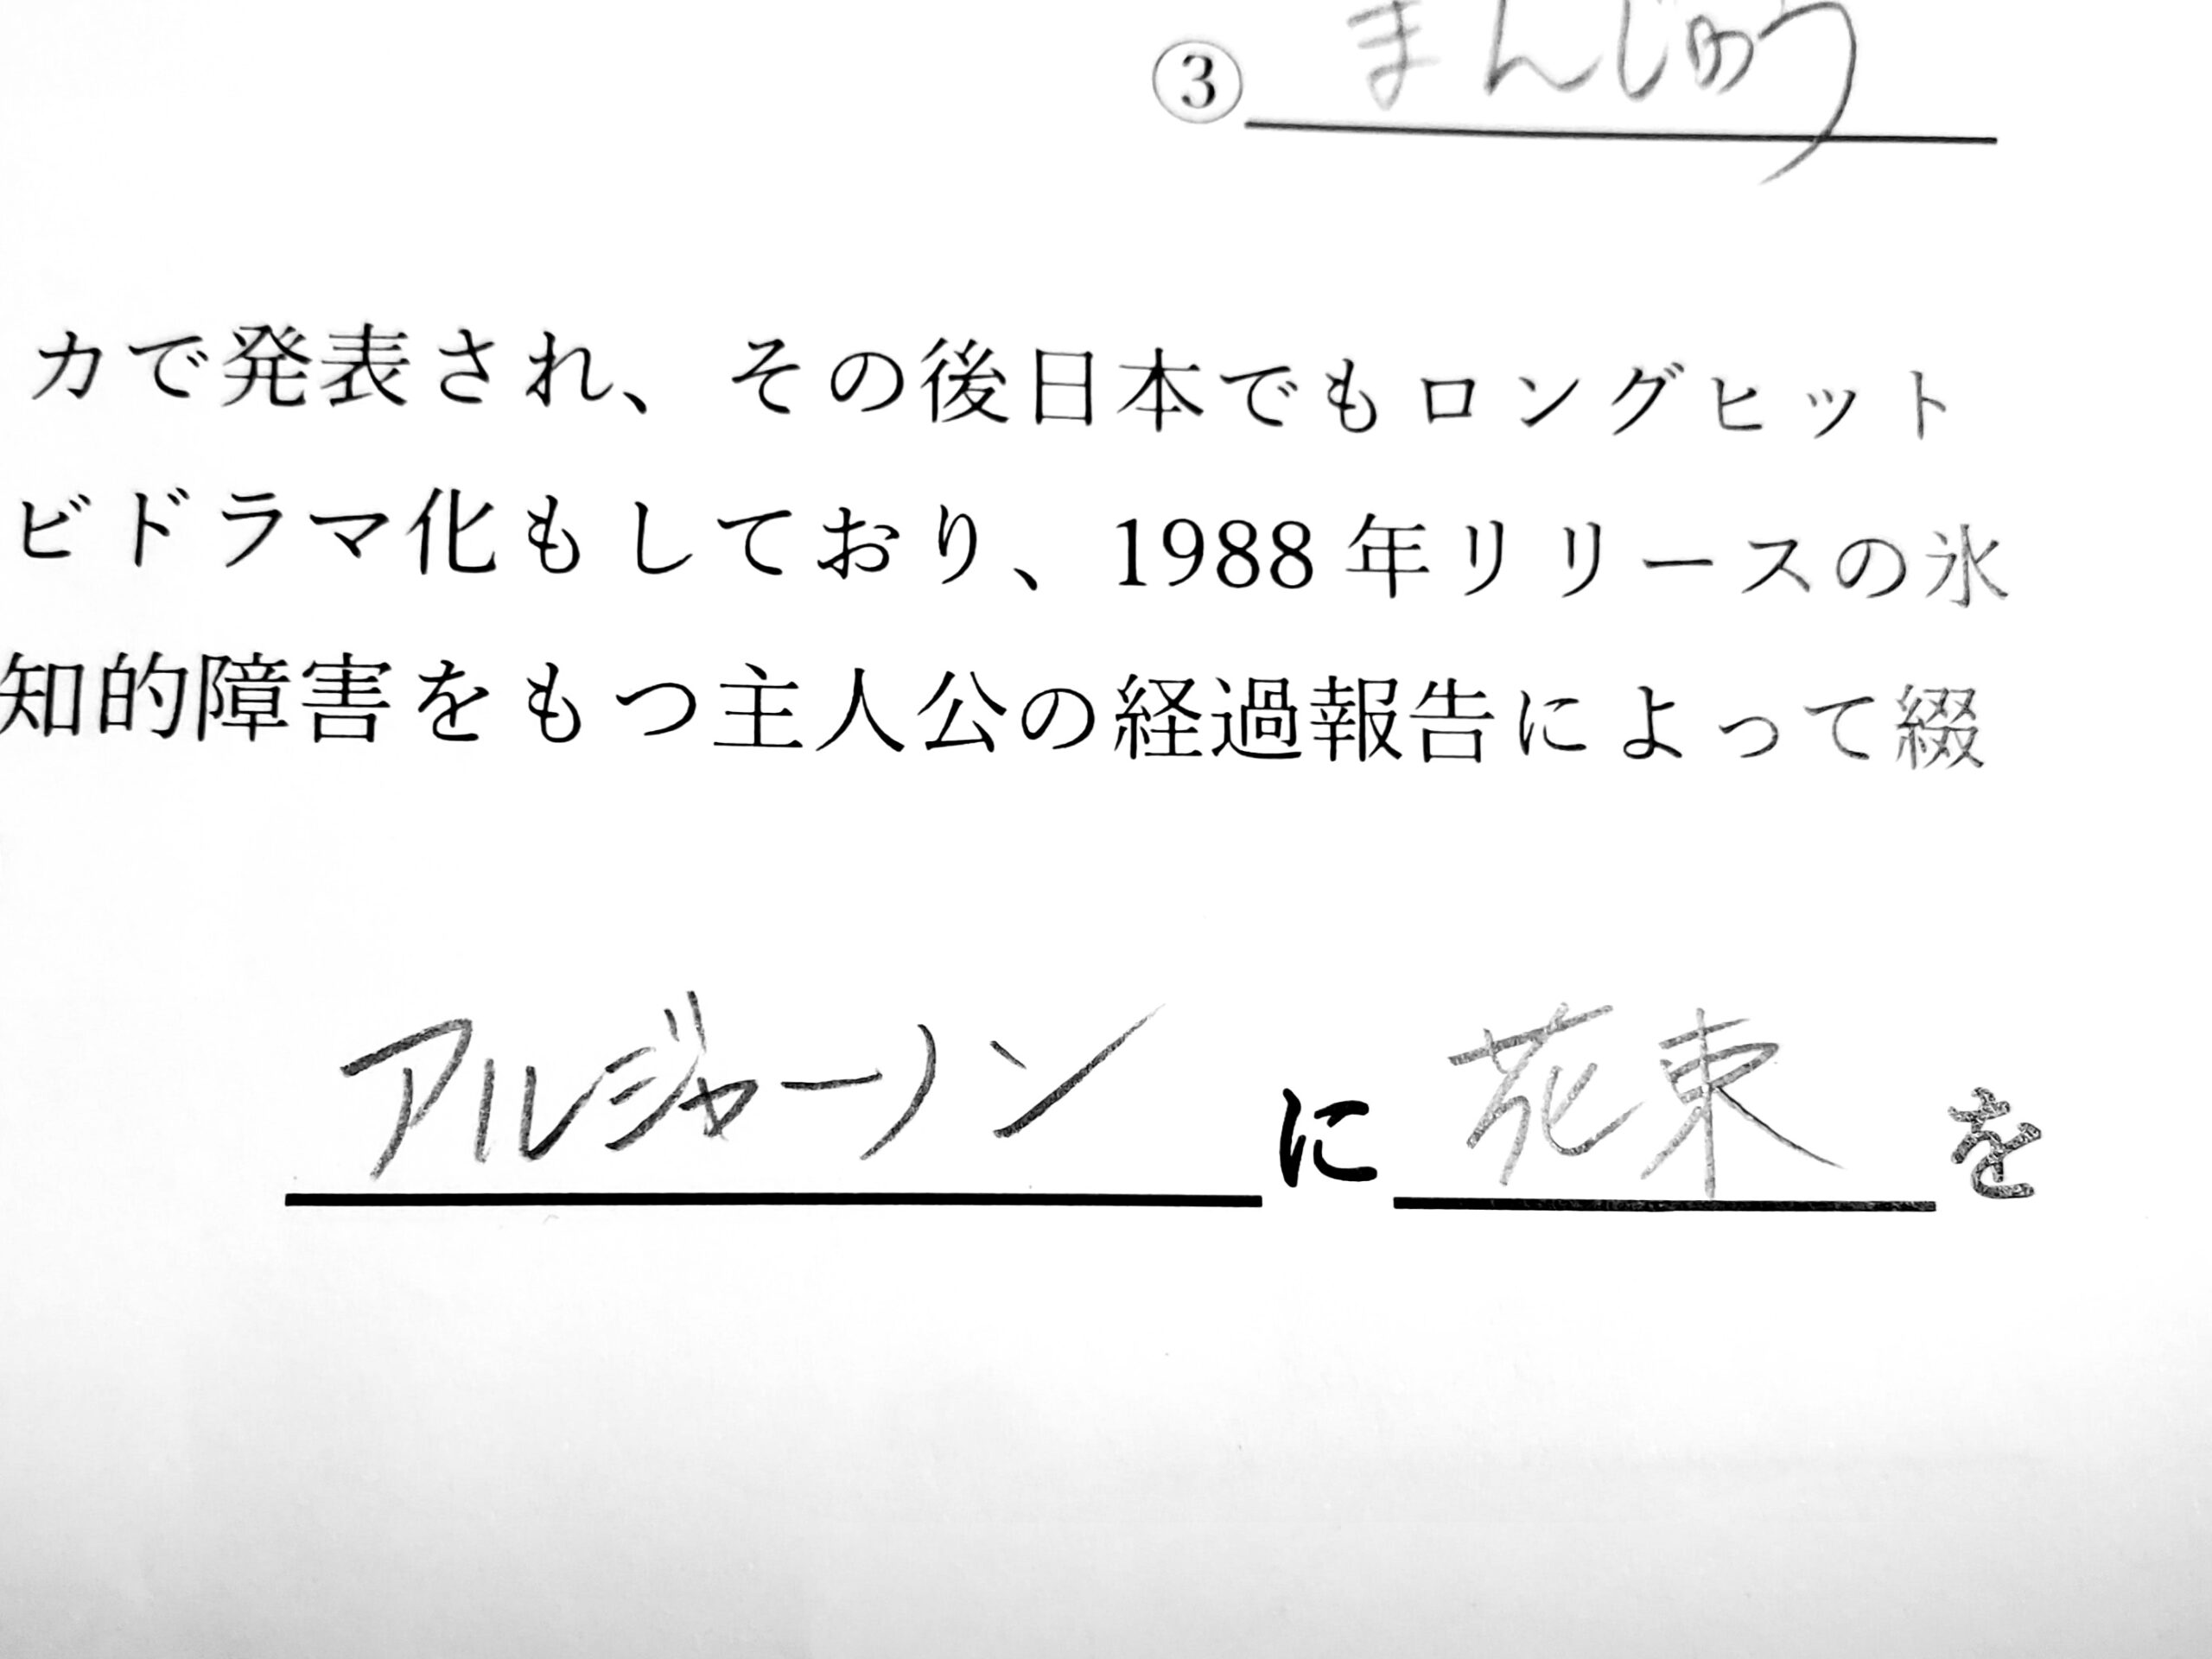 ③ まんじゅう
カで発表され、その後日本でもロングヒット
ビドラマ化もしており、1988年リリースの氷
知的障害をもつ主人公の経過報告によって綴
アルジャーノンに花束を